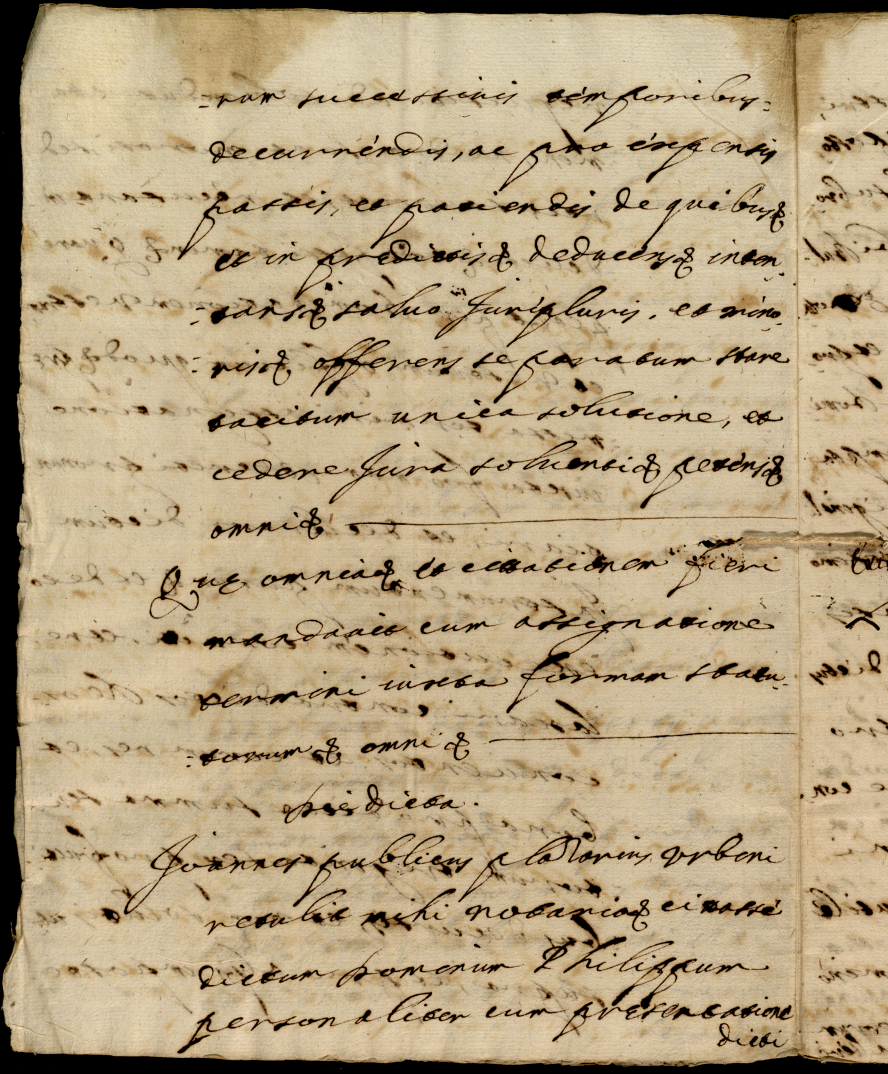 -rum successiuis temporibus-
decurrendis, ac pro expensis
passis, et patiendis de quibus&
et in predictis& deducens& inten-
-tans& saluo Juri pluris, et mino-
-ris& offerens se paratum stare
tacitum unica solutione, et
cedere Jura soluenti& petens&
omni&
Quę omnia& et citationem fieri
mandauit cum assignatione
termini iuxta formam statu-
-torum & omni &
die dicta.
Joannes publicus plazarius Vrbeni
retulit mihi notario& citasse
dictum Dominum Philippum
personaliter cum presentatione
dicti